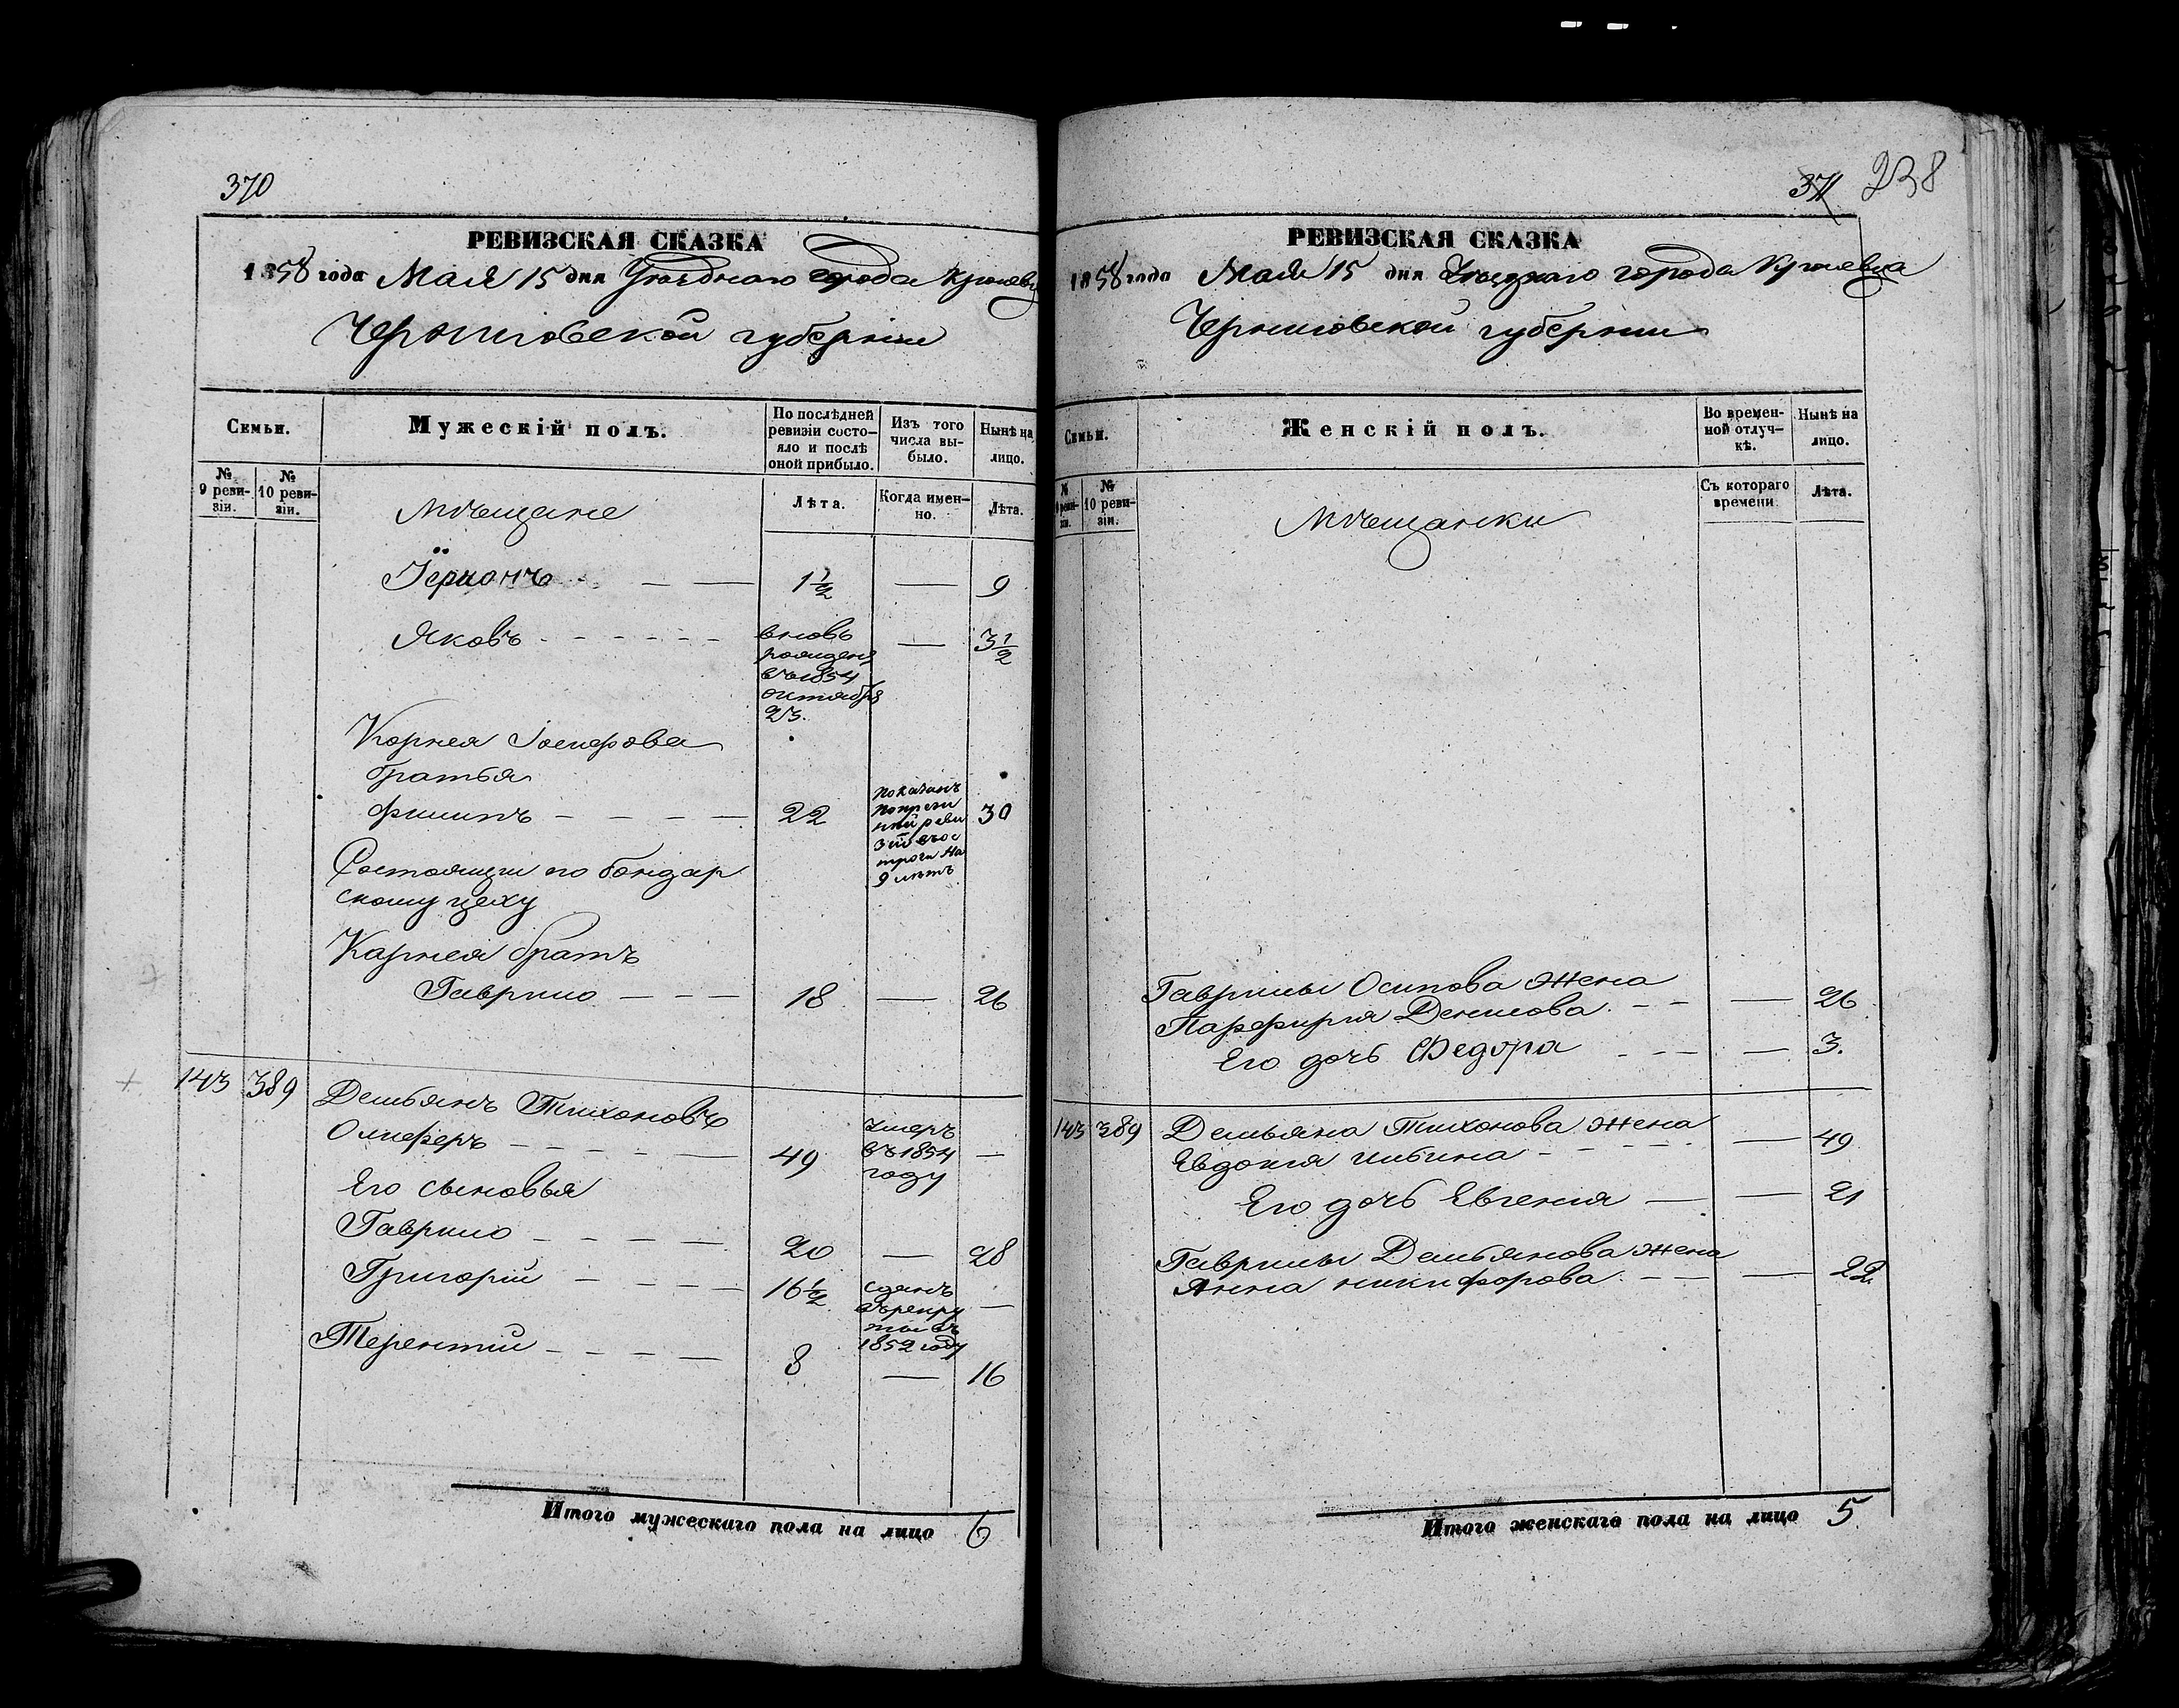 370
РЕВИЗСКАЯ СКАЗКА
1858 года Мая 15 дня Уѣзднаго города Кролевц
Черниговской губерніи
Семьи.
Мужескій полъ.
По послѣдней ревизіи состояло и послѣ оной прибыло.
Изъ того числа выбыло.
Нынѣ на лицо.
№ 9 ревизіи.
№ 10 ревизіи.
Мѣщане
Лѣта.
Когда именно.
Лѣта.
1½ — 9
Яковъ - - - - - - вновь рожденъ въ 1854 октября 23. — 3½
Корнея Іосифова
братья
Филипъ — — — — 22 показанъ ревизіи на 9 лѣтъ 30
Состоящи по бондар
скому цеху
Карнея братъ
Гаврило — — — 18 — 26
143 389 Демьянъ Тихоновъ
Олиферъ — — — 49 умеръ въ 1854 году —
Его сыновья
Гаврило — — — — 20 — 28
Григорій — — — 16½ сданъ въ рекруты въ 1852 году —
Терентій — — — — 8 — 16
Итого мужескаго пола на лицо 6
371 238
РЕВИЗСКАЯ СКАЗКА
1858 года Мая 15 дня Уѣзднаго города Кролевца
Черниговской губерніи
Семьи.
Женскій полъ.
Во временной отлучкѣ.
Нынѣ на лицо.
№ 9 ревизіи.
№ 10 ревизіи.
Мѣщанки
Съ котораго времени.
Лѣта.
Гаврилы Осипова жена
Парфирия Денисова — — — 26
Его дочь Федора — — — 3.
143 389 Демьяна Тихонова жена
Евдокия Ильина — — — 49
Его дочь Евгения — — 21
Гаврилы Демьянова жена
Анна никифорова — — — 22
Итого женскаго пола на лицо 5